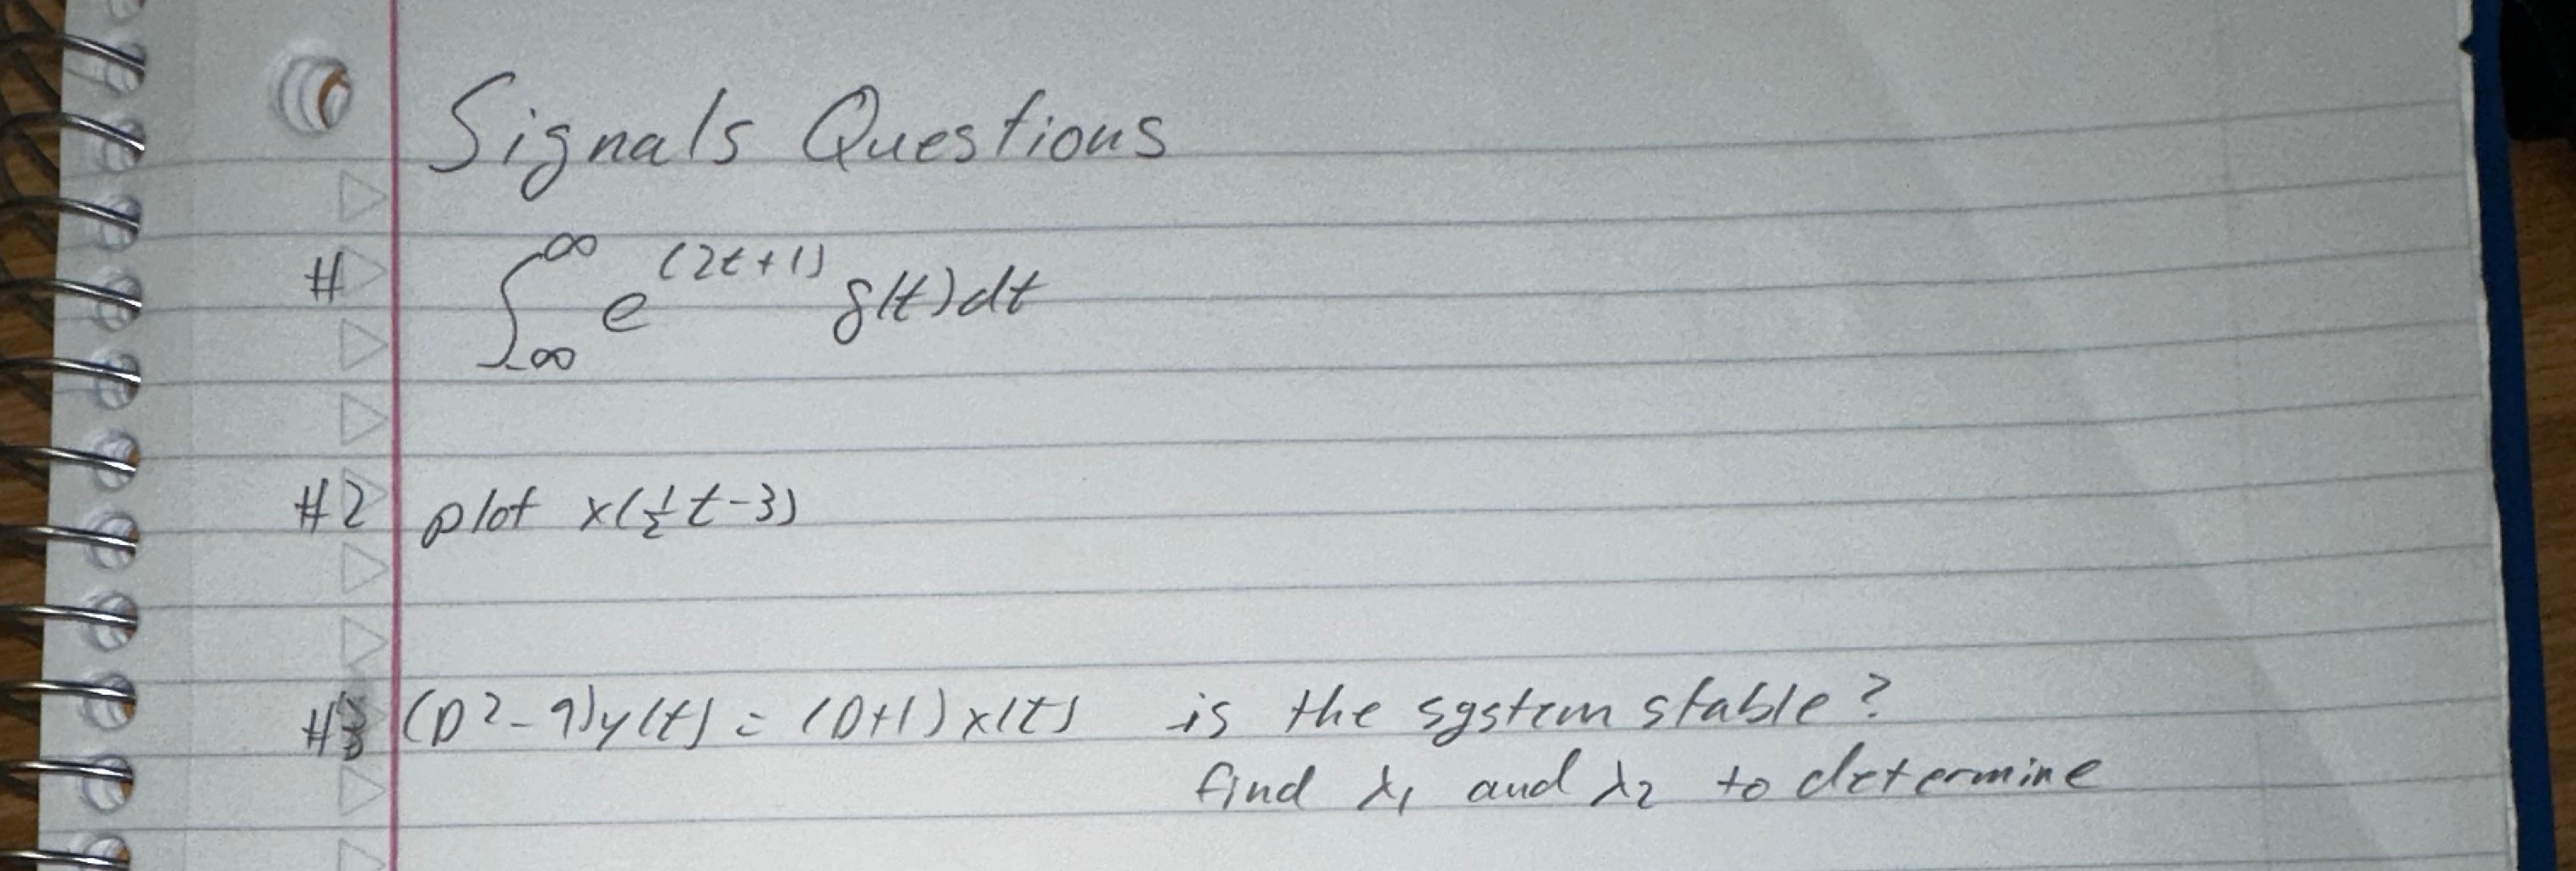 Signals Questions
# ∫_{-∞}^{∞} e^{(2t+1)} δ(t)dt
#2 plot x(½t-3)
#3 (D²-9)y(t) = (D+1)x(t) is the system stable?
find λ₁ and λ₂ to determine